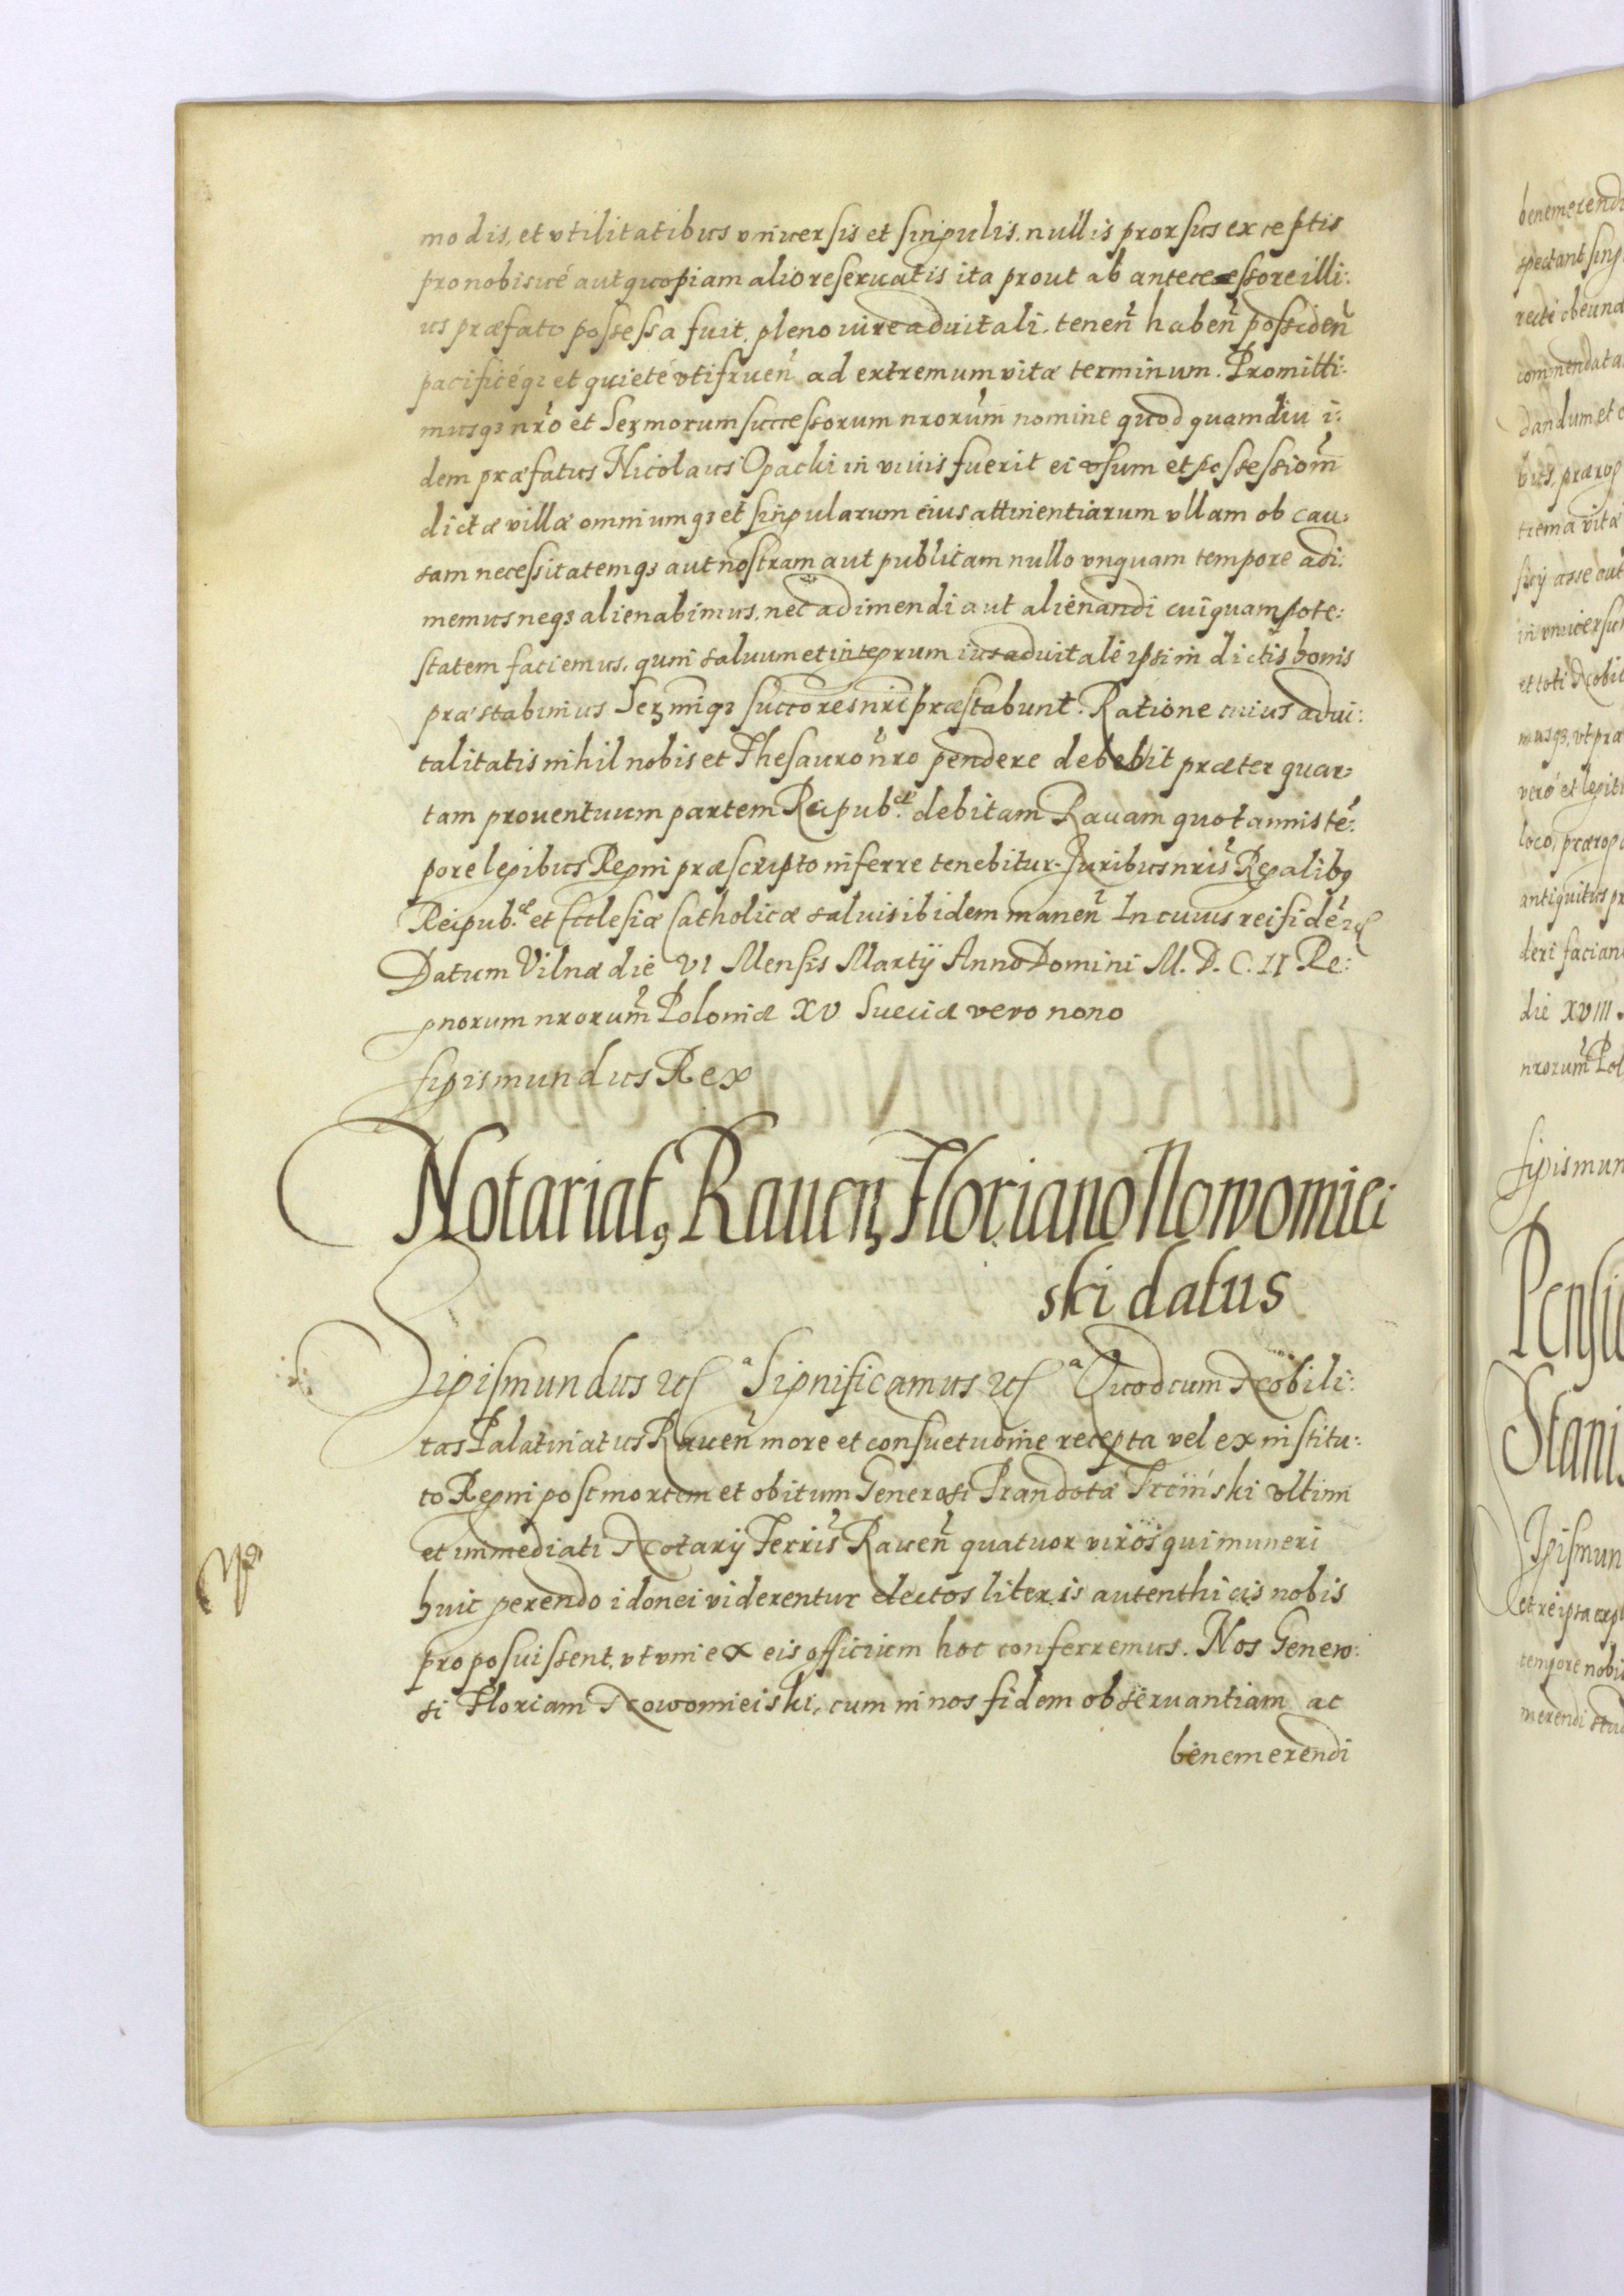 modis, et vtilitatibus vniuersis et singulis, nullis prorsus exceptis
pro nobis ué aut quopiam alio reseruatis ita prout ab antecessore illi:
us præfato possessa fuit, pleno iure aduitali. teneñ habeñ possideñ
pacificéqȝ et quieté vtifrueñ ad extremum vitæ terminum. Promitti:
musqȝ nrõ et Serᵹmorum successorum nrorũm nomine quod quamdiu i:
dem præfatus Nicolaus Opacki in viuis fuerit ei vsum et possessiom̃
dictæ villæ omniumqȝ et singularum eius attinentiarum vllam ob cau:
sam necessitatemqȝ aut nostram aut publicam nullo vnquam tempore adi:
memus neqȝ alienabimus, nec adimendi aut alienandi cuiquam pote:
statem faciemus, quin saluum et integrum ius aduitale ipsi in dictis bonis
præstabimus Serᵹmiqȝ succores nri præstabunt. Ratione cuius adui:
talitatis nihil nobis et Thesauro nr̃o pendere debebit præter quar:
tam prouentuum partem Reipub.æ debitam Rauam quotannis tẽ:
pore legibus Regni præscripto inferre tenebitur. Juribus nris̃ Regalibꝯ
Reipub.æ et Ecclesiæ Catholicæ saluis ibidem maneñ In cuius rei fidẽ ꝛc
Datum Vilnæ die VI Mensis Martij Anno Domini M. D. C. II Re:
gnorum nrorũm Poloniæ XV Sueciæ vero nono
Sigismundus Rex
Notariatꝯ Rauenᵹ Floriano Nowomiei
ski datus
Sigismundus ꝛc a Significamus ꝛc a Quod cum Nobili:
tas Palatinatus Raueñ more et consuetudine recepta vel ex institu:
to Regni post mortem et obitum Generosi Prandotæ Trciński vltimi
et immediati Notarij Terris̃ Raueñ quatuor viros qui muneri
huic gerendo idonei viderentur electos literis autenthicis nobis
proposuissent, vt vni ex eis officium hoc conferremus. Nos Genero:
si Floriani Nowomieiski, cum in nos fidem obseruantiam ac
benemerendi